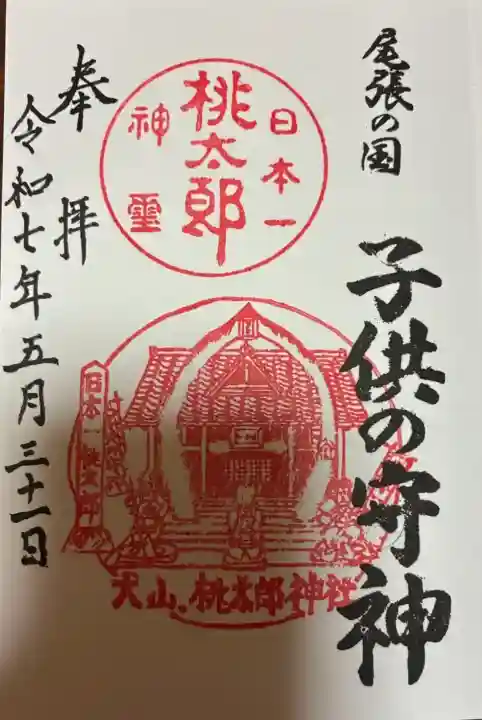 尾張の国
子供の守神
日本一
桃太郎
神霊
日本一桃太郎
犬山、桃太郎神社
奉拝
令和七年五月三十一日